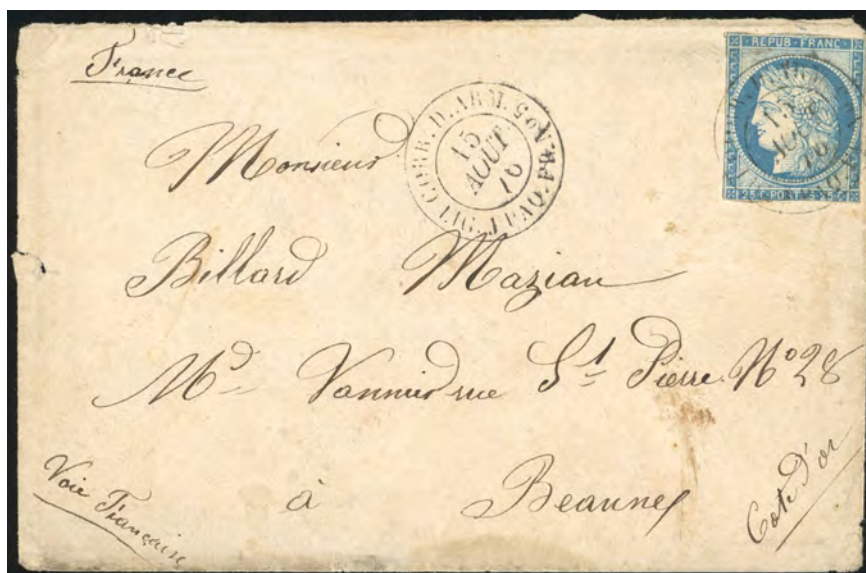 France
REPUB·FRANC
25·C·POSTES·25·C
CORR.D.ARM. LIG.J PAQ.FR.No5
15
AOUT
76
Monsieur
Billard Mazian
Md Vannier rue St Pierre No 28
à Beaune
Cote d'or
Voie Française